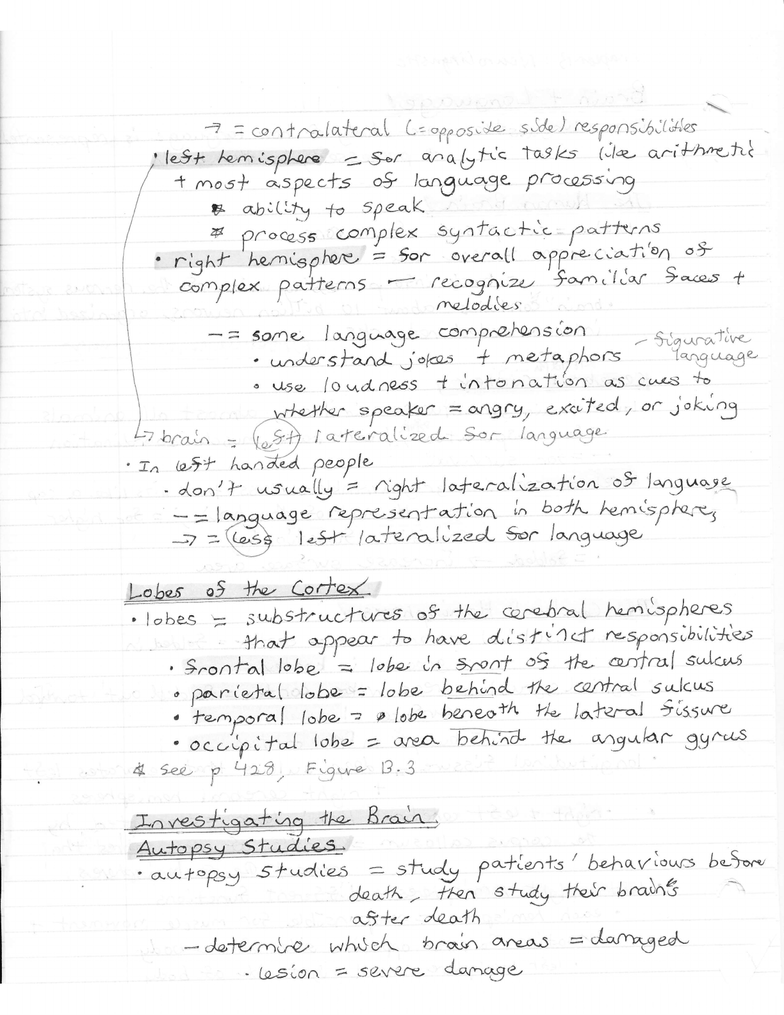 → = contralateral (= opposite side) responsibilities
• left hemisphere = for analytic tasks (like arithmetic
+ most aspects of language processing
* ability to speak
* process complex syntactic patterns
• right hemisphere = for overall appreciation of
complex patterns — recognize familiar faces +
melodies
— = some language comprehension
• understand jokes + metaphors - figurative language
• use loudness + intonation as cues to
whether speaker = angry, excited, or joking
→ brain = left lateralized for language
• In left handed people
• don't usually = right lateralization of language
— = language representation in both hemispheres
→ = less left lateralized for language
Lobes of the Cortex
• lobes = substructures of the cerebral hemispheres
that appear to have distinct responsibilities
• frontal lobe = lobe in front of the central sulcus
• parietal lobe = lobe behind the central sulcus
• temporal lobe = lobe beneath the lateral fissure
• occipital lobe = area behind the angular gyrus
* see p 428, Figure 13.3
Investigating the Brain
Autopsy Studies
• autopsy studies = study patients' behaviours before
death, then study their brains
after death
— determine which brain areas = damaged
• lesion = severe damage